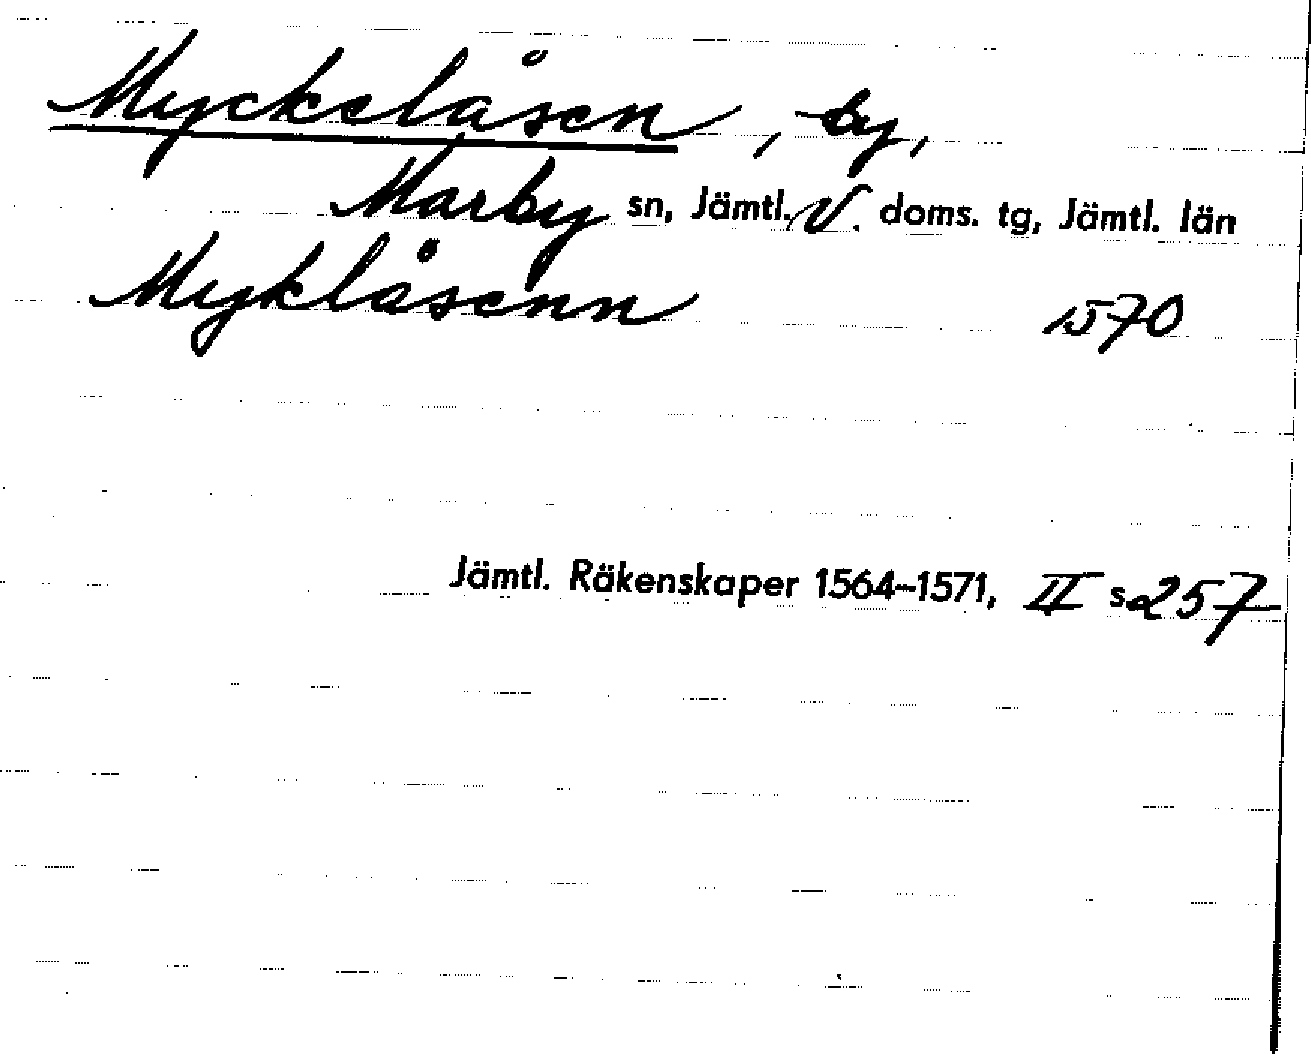 Myckelåsen, by,
Marby sn, Jämtl. V. doms. tg, Jämtl. län
Myklåsenn 1570
Jämtl. Räkenskaper 1564–1571, II s. 257